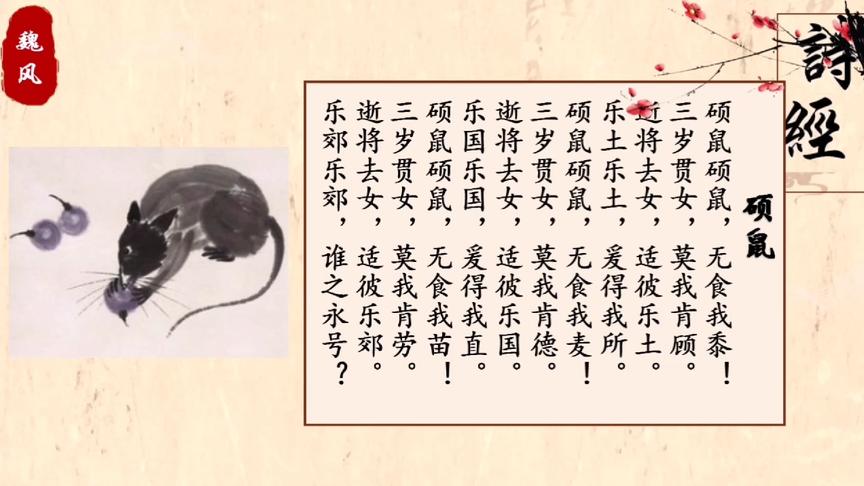 詩經
硕鼠
硕鼠硕鼠，无食我黍！
三岁贯女，莫我肯顾。
逝将去女，适彼乐土。
乐土乐土，爰得我所。
硕鼠硕鼠，无食我麦！
三岁贯女，莫我肯德。
逝将去女，适彼乐国。
乐国乐国，爰得我直。
硕鼠硕鼠，无食我苗！
三岁贯女，莫我肯劳。
逝将去女，适彼乐郊。
乐郊乐郊，谁之永号？
魏风